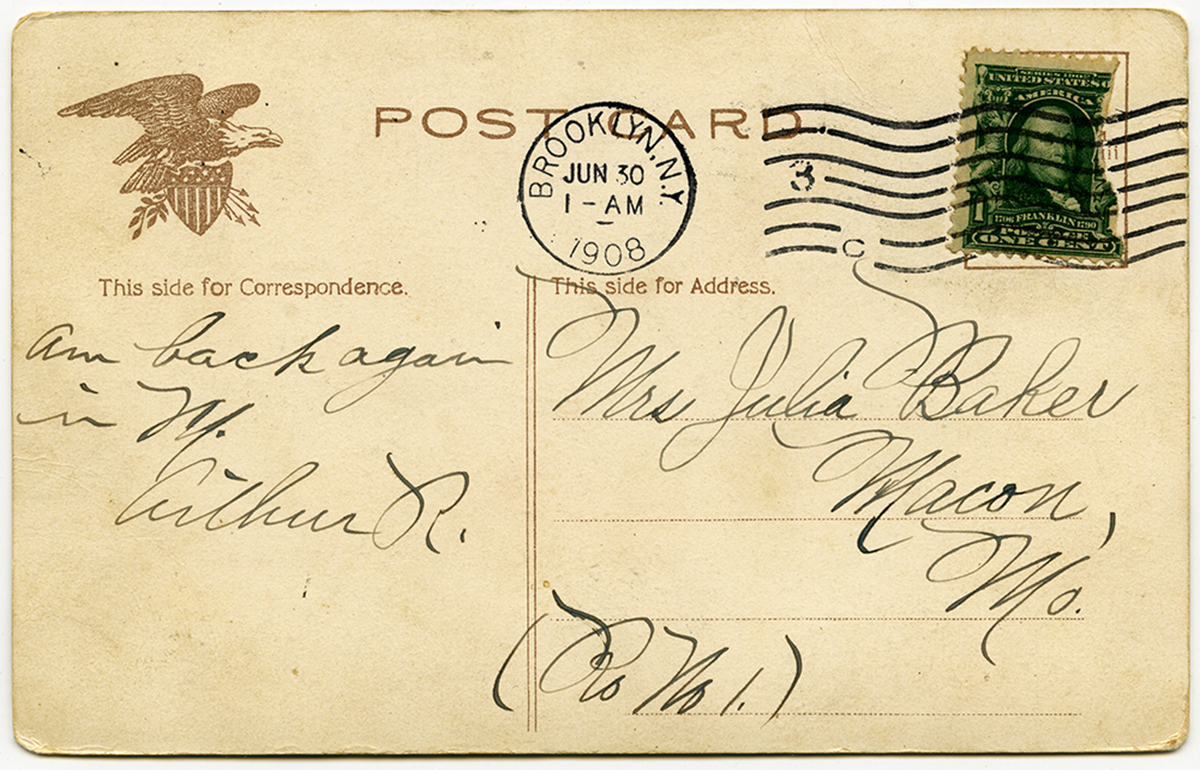 POST CARD
BROOKLYN, N.Y.
JUN 30
1-AM
1908
3
C
SERIES 1902
UNITED STATES
AMERICA
1
1706 FRANKLIN 1790
POSTAGE
ONE CENT
This side for Correspondence.
am back again
in M.
Arthur R.
This side for Address.
Mrs Julia Baker
Macon,
Mo.
( No 1.)